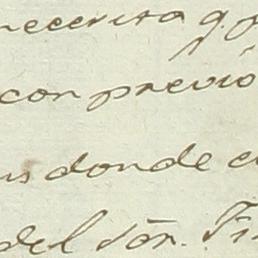 necesita q. p
con previo
us donde e
del Sōr. Fi